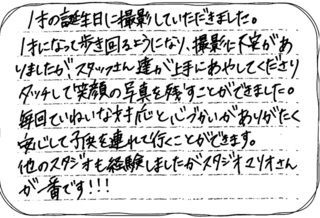 1才の誕生日に撮影していただきました。
1才になって歩き回るようになり、撮影に不安があ
りましたが、スタッフさん達が上手にあやしてくださり
タッチして笑顔の写真を残すことができました。
毎回ていねいな対応と心づかいがありがたく
安心して子供を連れて行くことができます。
他のスタジオも経験しましたがスタジオマリオさん
が一番です!!!